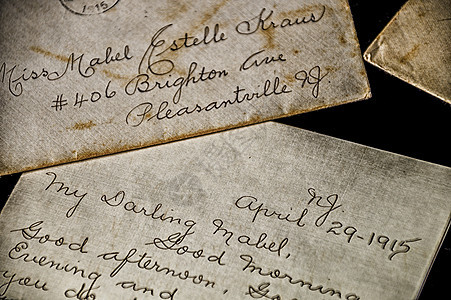 1-15
Miss Mabel Estelle Kraus
#406 Brighton Ave
Pleasantville NJ.
NJ.
April 29-1915
My Darling Mabel,
Good Morning
Good afternoon, Good
Evening and
you